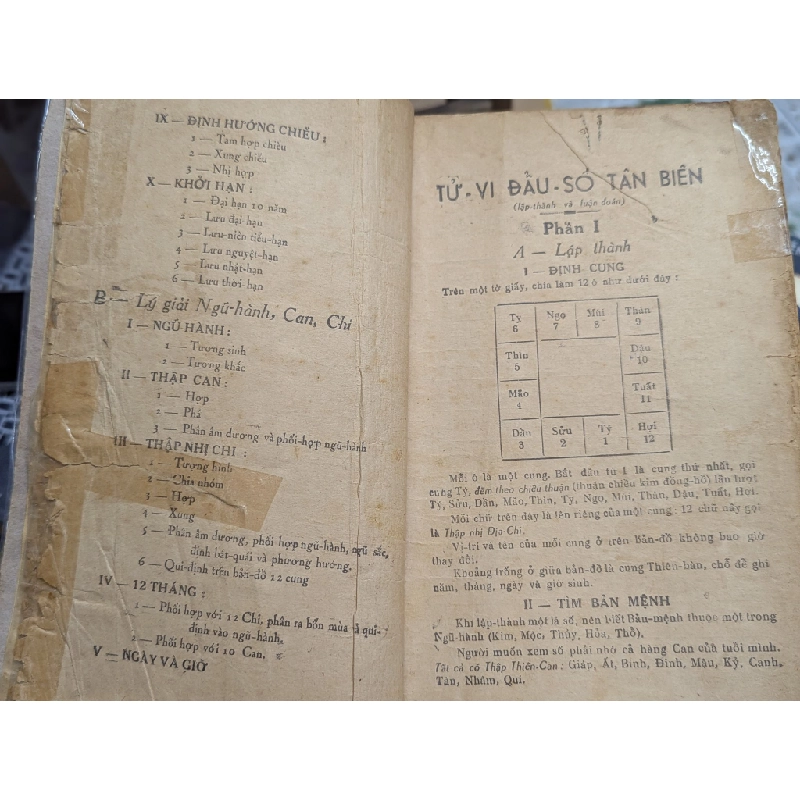 IX — ĐỊNH HƯỚNG CHIẾU :
1 — Tam hợp chiếu
2 — Xung chiếu
3 — Nhị hợp
X — KHỞI HẠN :
1 — Đại hạn 10 năm
2 — Lưu đại-hạn
3 — Lưu-niên tiểu-hạn
4 — Lưu nguyệt-hạn
5 — Lưu nhật-hạn
6 — Lưu thời-hạn
B — Lý giải Ngũ-hành, Can, Chi
I — NGŨ HÀNH :
1 — Tương sinh
2 — Tương khắc
II — THẬP CAN :
1 — Hợp
2 — Phá
3 — Phân âm dương và phối-hợp ngũ-hành
III — THẬP NHỊ CHI :
1 — Tượng hình
2 — Chia nhóm
3 — Hợp
4 — Xung
5 — Phân âm dương, phối hợp ngũ-hành, ngũ sắc,
định kết-quái và phương hướng.
6 — Qui-định trên bản-đồ 12 cung
IV — 12 THÁNG :
1 — Phối hợp với 12 Chi, phân ra bốn mùa và qui-
định vào ngũ-hành.
2 — Phối hợp với 10 Can.
V — NGÀY VÀ GIỜ
TỬ-VI ĐẨU-SỐ TÂN BIÊN
(lập-thành và luận đoán)
Phần I
A — Lập thành
I — ĐỊNH CUNG
Trên một tờ giấy, chia làm 12 ô như dưới đây :
Tỵ Ngọ Mùi Thân
6 7 8 9
Thìn Dậu
5 10
Mão Tuất
4 11
Dần Sửu Tý Hợi
3 2 1 12
Mỗi ô là một cung. Bắt đầu từ 1 là cung thứ nhất, gọi
cung Tý, đếm theo chiều thuận (thuận chiều kim đồng-hồ) lần lượt
Tý, Sửu, Dần, Mão, Thìn, Tỵ, Ngọ, Mùi, Thân, Dậu, Tuất, Hợi.
Mỗi chữ trên đây là tên riêng của một cung : 12 chữ này gọi
là Thập nhị Địa Chi.
Vị-trí và tên của mỗi cung ở trên Bản-đồ không bao giờ
thay đổi.
Khoảng trống ở giữa bản-đồ là cung Thiên-bàn, chỗ để ghi
năm, tháng, ngày và giờ sinh.
II — TÌM BẢN MỆNH
Khi lập-thành một lá số, nên biết Bản-mệnh thuộc một trong
Ngũ-hành (Kim, Mộc, Thủy, Hỏa, Thổ).
Người muốn xem số phải nhớ cả hàng Can của tuổi mình.
Tất cả có Thập Thiên-Can : Giáp, Ất, Bính, Đinh, Mậu, Kỷ, Canh,
Tân, Nhâm, Quí.